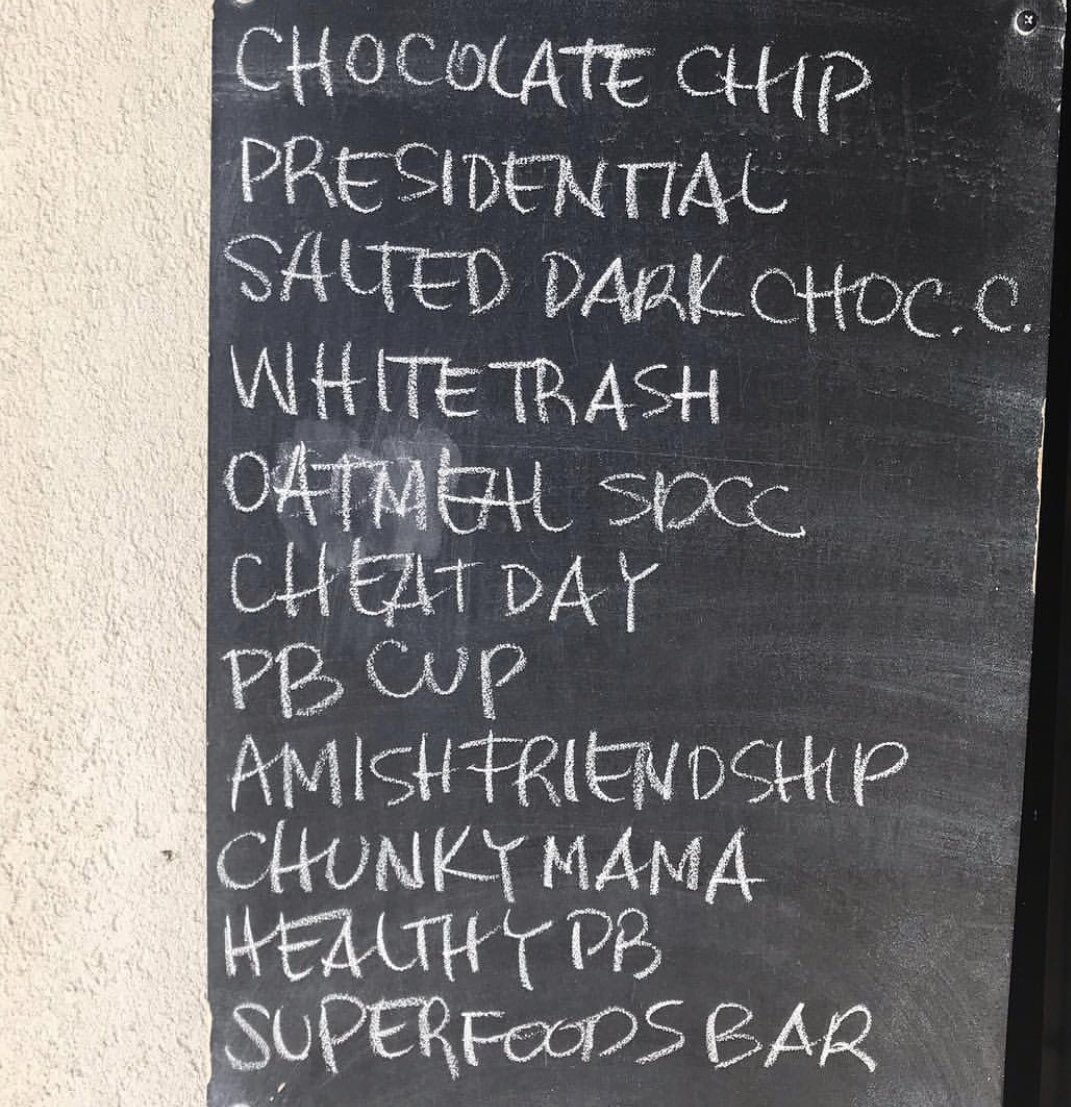 CHOCOLATE CHIP
PRESIDENTIAL
SALTED DARK CHOC. C.
WHITE TRASH
OATMEAL SDCC
CHEAT DAY
PB CUP
AMISH FRIENDSHIP
CHUNKY MAMA
HEALTHY PB
SUPERFOODS BAR